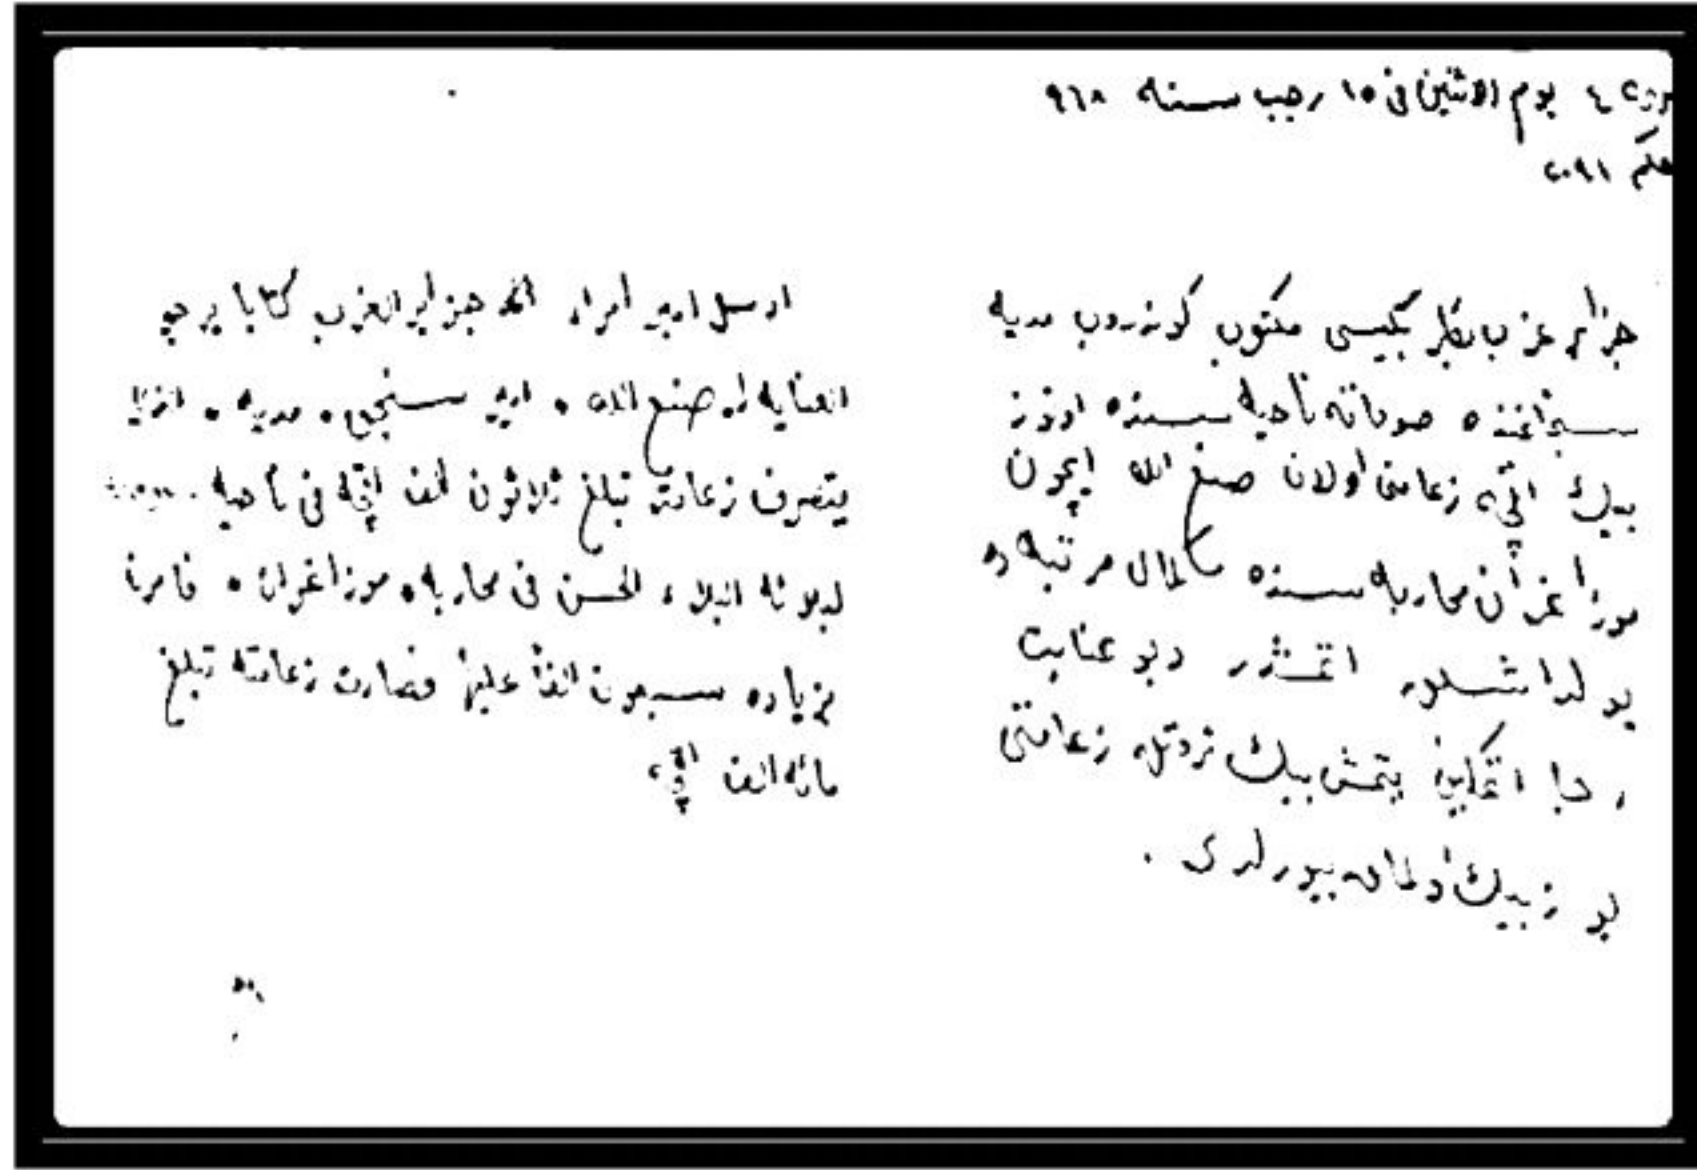 ٤ يوم الاثنين فى ١٥ رجب سنه ٩٦٨
حكم ٢٠٩١
جزائر غرب بكلربكيسى مكتوب كوندروب مديه
سنجاغنده ناحيه سنده اوتوز
بيك اقچه زعامتى اولان صنع الله ايچون
موزاغران محاربه سنده كمال مرتبه ده
يولداشلق اتمشدر ديو عنايت
رجا اتمكين يتمش بيك ترقيله زعامتى
يوز بيك اولمق بيوردى .
ارسل امير امراء الجزاير الغرب كتابا يرجو
العناية لـ صنع الله ، امير سنجق ، مديه ،
يتصرف زعامته تبلغ ثلاثون الف اقچه فى ناحيه
البلاء الحسن فى محاربه ، موزاغران ، فامرنا
بزياده سبعون الفا عليها فصارت زعامته تبلغ
مائه الف اقچه